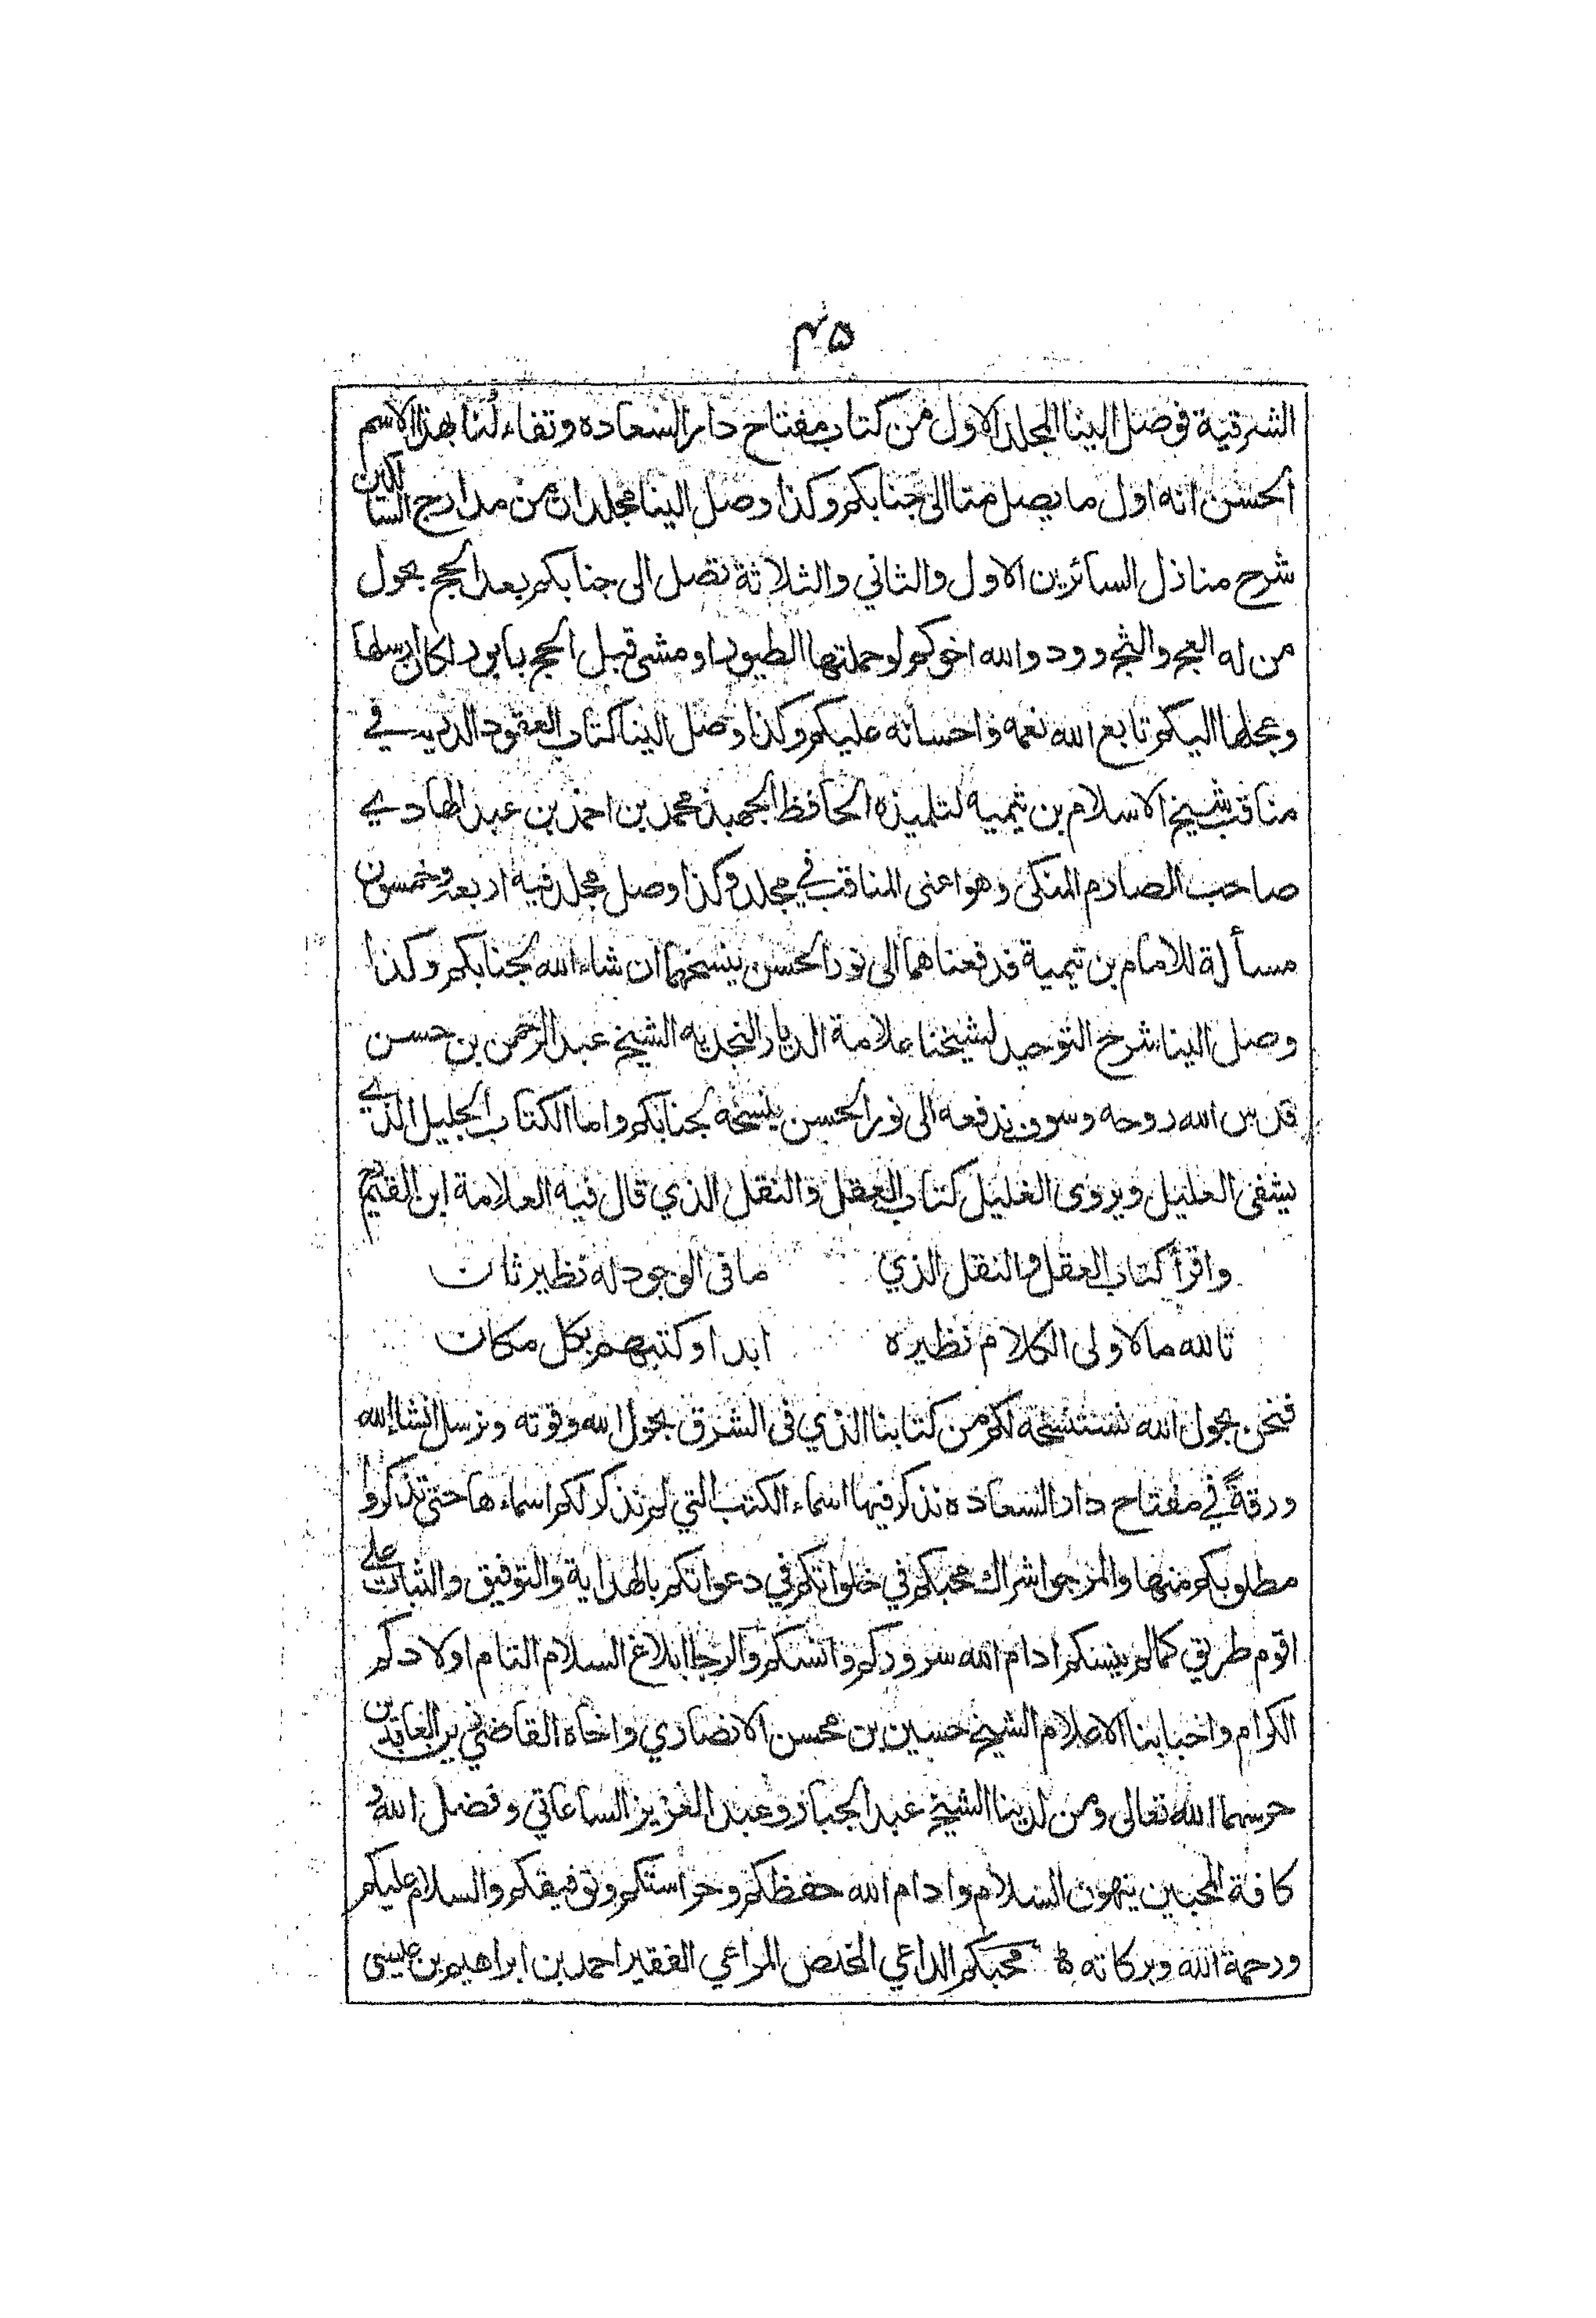 ٤٥
الشرقية فوصل الينا المجلد الاول من كتاب مفتاح دار السعاده وتفاءلنا بهذا الاسم
الحسن انه اول ما يصل منا الى جنابكم وكذا وصل الينا مجلدان من مدارج السالكين
شرح منازل السائرين الاول والثاني والثلاثة تصل الى جنابكم بعد الحج بحول
من له العج والثج وود والله اخوكم لو حملتها الطيور او مشى قبل الحج بابور لكان ارسلها
وعجلها اليكم تابع الله نعمه واحسانه عليكم وكذا وصل الينا كتاب العقود الدريه في
مناقب شيخ الاسلام بن تيميه لتلميذه الحافظ الجهبذ محمد بن احمد بن عبد الهادي
صاحب الصارم المنكى وهو اعنى المناقب في مجلد وكذا وصل مجلد فيه اربعه وخمسون
مسألة للامام بن تيمية فدفعناهما الى نور الحسن ينسخهما ان شاء الله لجنابكم وكذا
وصل الينا شرح التوحيد لشيخنا علامة الديار النجديه الشيخ عبد الرحمن بن حسن
قدس الله روحه وسوف ندفعه الى نور الحسن ينسخه لجنابكم واما الكتاب الجليل الذي
يشفى العليل ويروى الغليل كتاب العقل والنقل الذي قال فيه العلامة ابن القيم
واقرأ كتاب العقل والنقل الذي ما فى الوجود له نظير ثان
تالله ما لاولى الكلام نظيره ابدا وكتبهم بكل مكان
فنحن بحول الله نستنسخه لكم من كتابنا الذي فى الشرق بحول الله وقوته ونرسل انشاالله
ورقةً في مفتاح دار السعاده نذكر فيها اسماء الكتب التي لم نذكر لكم اسماءها حتى تذكروا
مطلوبكم منها والمرجوا شراك محبكم في خلواتكم في دعواتكم بالهداية والتوفيق والثبات على
اقوم طريق كما لم ينسكم ادام الله سروركم وانسكم والرجا ابلاغ السلام التام اولادكم
الكرام واحبابنا الاعلام الشيخ حسين بن محسن الانصاري واخاه القاضي زين العابدين
حرسهما الله تعالى ومن لدينا الشيخ عبد الجبار وعبد العزيز الساعاتي وفضل الله و
كافة المحبين ينهون السلام وادام الله حفظكم وحراستكم وتوفيقكم والسلام عليكم
ورحمة الله وبركاته محبكم الداعي المخلص المراعي الفقير احمد بن ابراهيم بن عيسى